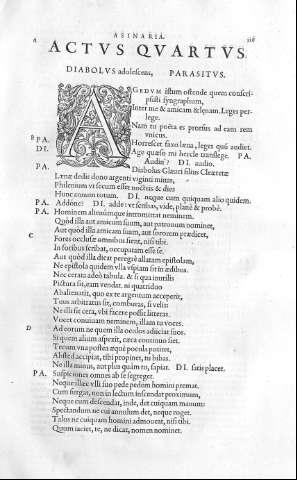 ASINARIA. 116
A ACTVS QVARTVS.
DIABOLVS adolescens, PARASITVS.
AGEDVM istum ostende quem conscri-
psisti syngraphum,
Inter me & amicam & lenam. Leges per-
lege.
Nam tu poëta es prorsus ad eam rem
vnicus.
Horrescet faxo lena, leges quũ audiet.
B PA. Age quæso mi hercle translege. PA.
DI. Audin'? DI. audio.
PA. Diabolus Glauci filius Cleæretæ
Lenæ dedit dono argenti viginti minas,
Philenium vt secum esset noctes & dies
Hunc annum totum. DI. neque cum quiquam alio quidem.
PA. Addóne? DI. adde: vt scribas, vide, planè & probè.
PA. Hominem alienum que intromittat neminem.
Quòd illa aut amicum suum, aut patronum nominet,
Aut quòd illa amicam suam, aut sororem prædicet,
C Fores occlusæ omnibus sient, nisi tibi.
In foribus scribat, occupatam esse se.
Aut quòd illa dicat peregrè allatam epistolam,
Ne epistola quidem vlla vspiam sit in ædibus.
Nec cerata adeò tabula. & si qua inutilis
Pictura sit, eam vendat. ni quatriduo
Abalienarit, quo ex te argentum acceperit,
Tuus arbitratus sit, comburas, si velis:
Ne illi sit cera, vbi facere possit litteras.
Vocet conuiuam neminem, illam tu voces.
D Ad eorum ne quem illa oculos adiiciat suos.
Si quem alium aspexit, cæca continuo siet.
Tecum vna postea æquè pocula potitet,
Abs te d accipiat, tibi propinet, tu bibas.
Ne illa minus, aut plus quàm tu, sapiat. DI. satis placet.
PA. Suspiciones omnes ab se segreget.
Neque illæc vlli suo pede pedem homini premat.
Cum surgat, neq; in lectum inscendat proximum,
Neque cum descendat, inde, det cuiquam manum:
Spectandum ne cui annulum det, neque roget.
Talos ne cuiquam homini admoueat, nisi tibi.
Quum iaciet, te, ne dicat, nomen nominet.